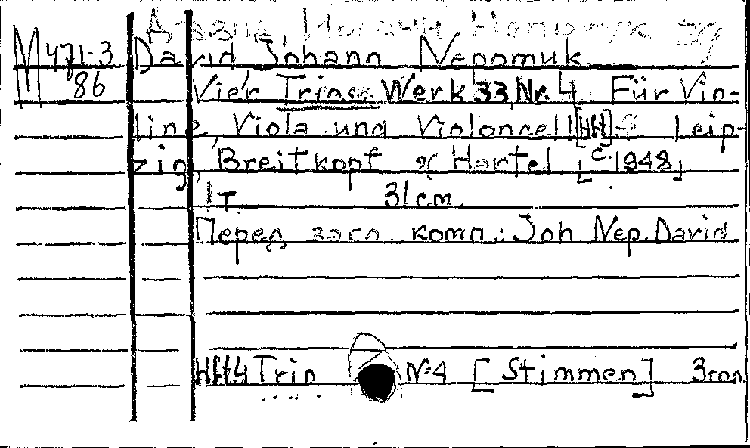 Давид, Иоганн Непомук
M 471-3 David Johann Nepomuk
86 Vier Trios. Werk 33, Nr. 4. Für Vio-
line, Viola und Violoncell Leip-
zig, Breitkopf & Härtel [c. 1948]
1 т. 31 cm.
Перед загл комп.: Joh Nep. David
Trio N. 4 [Stimmen] 3